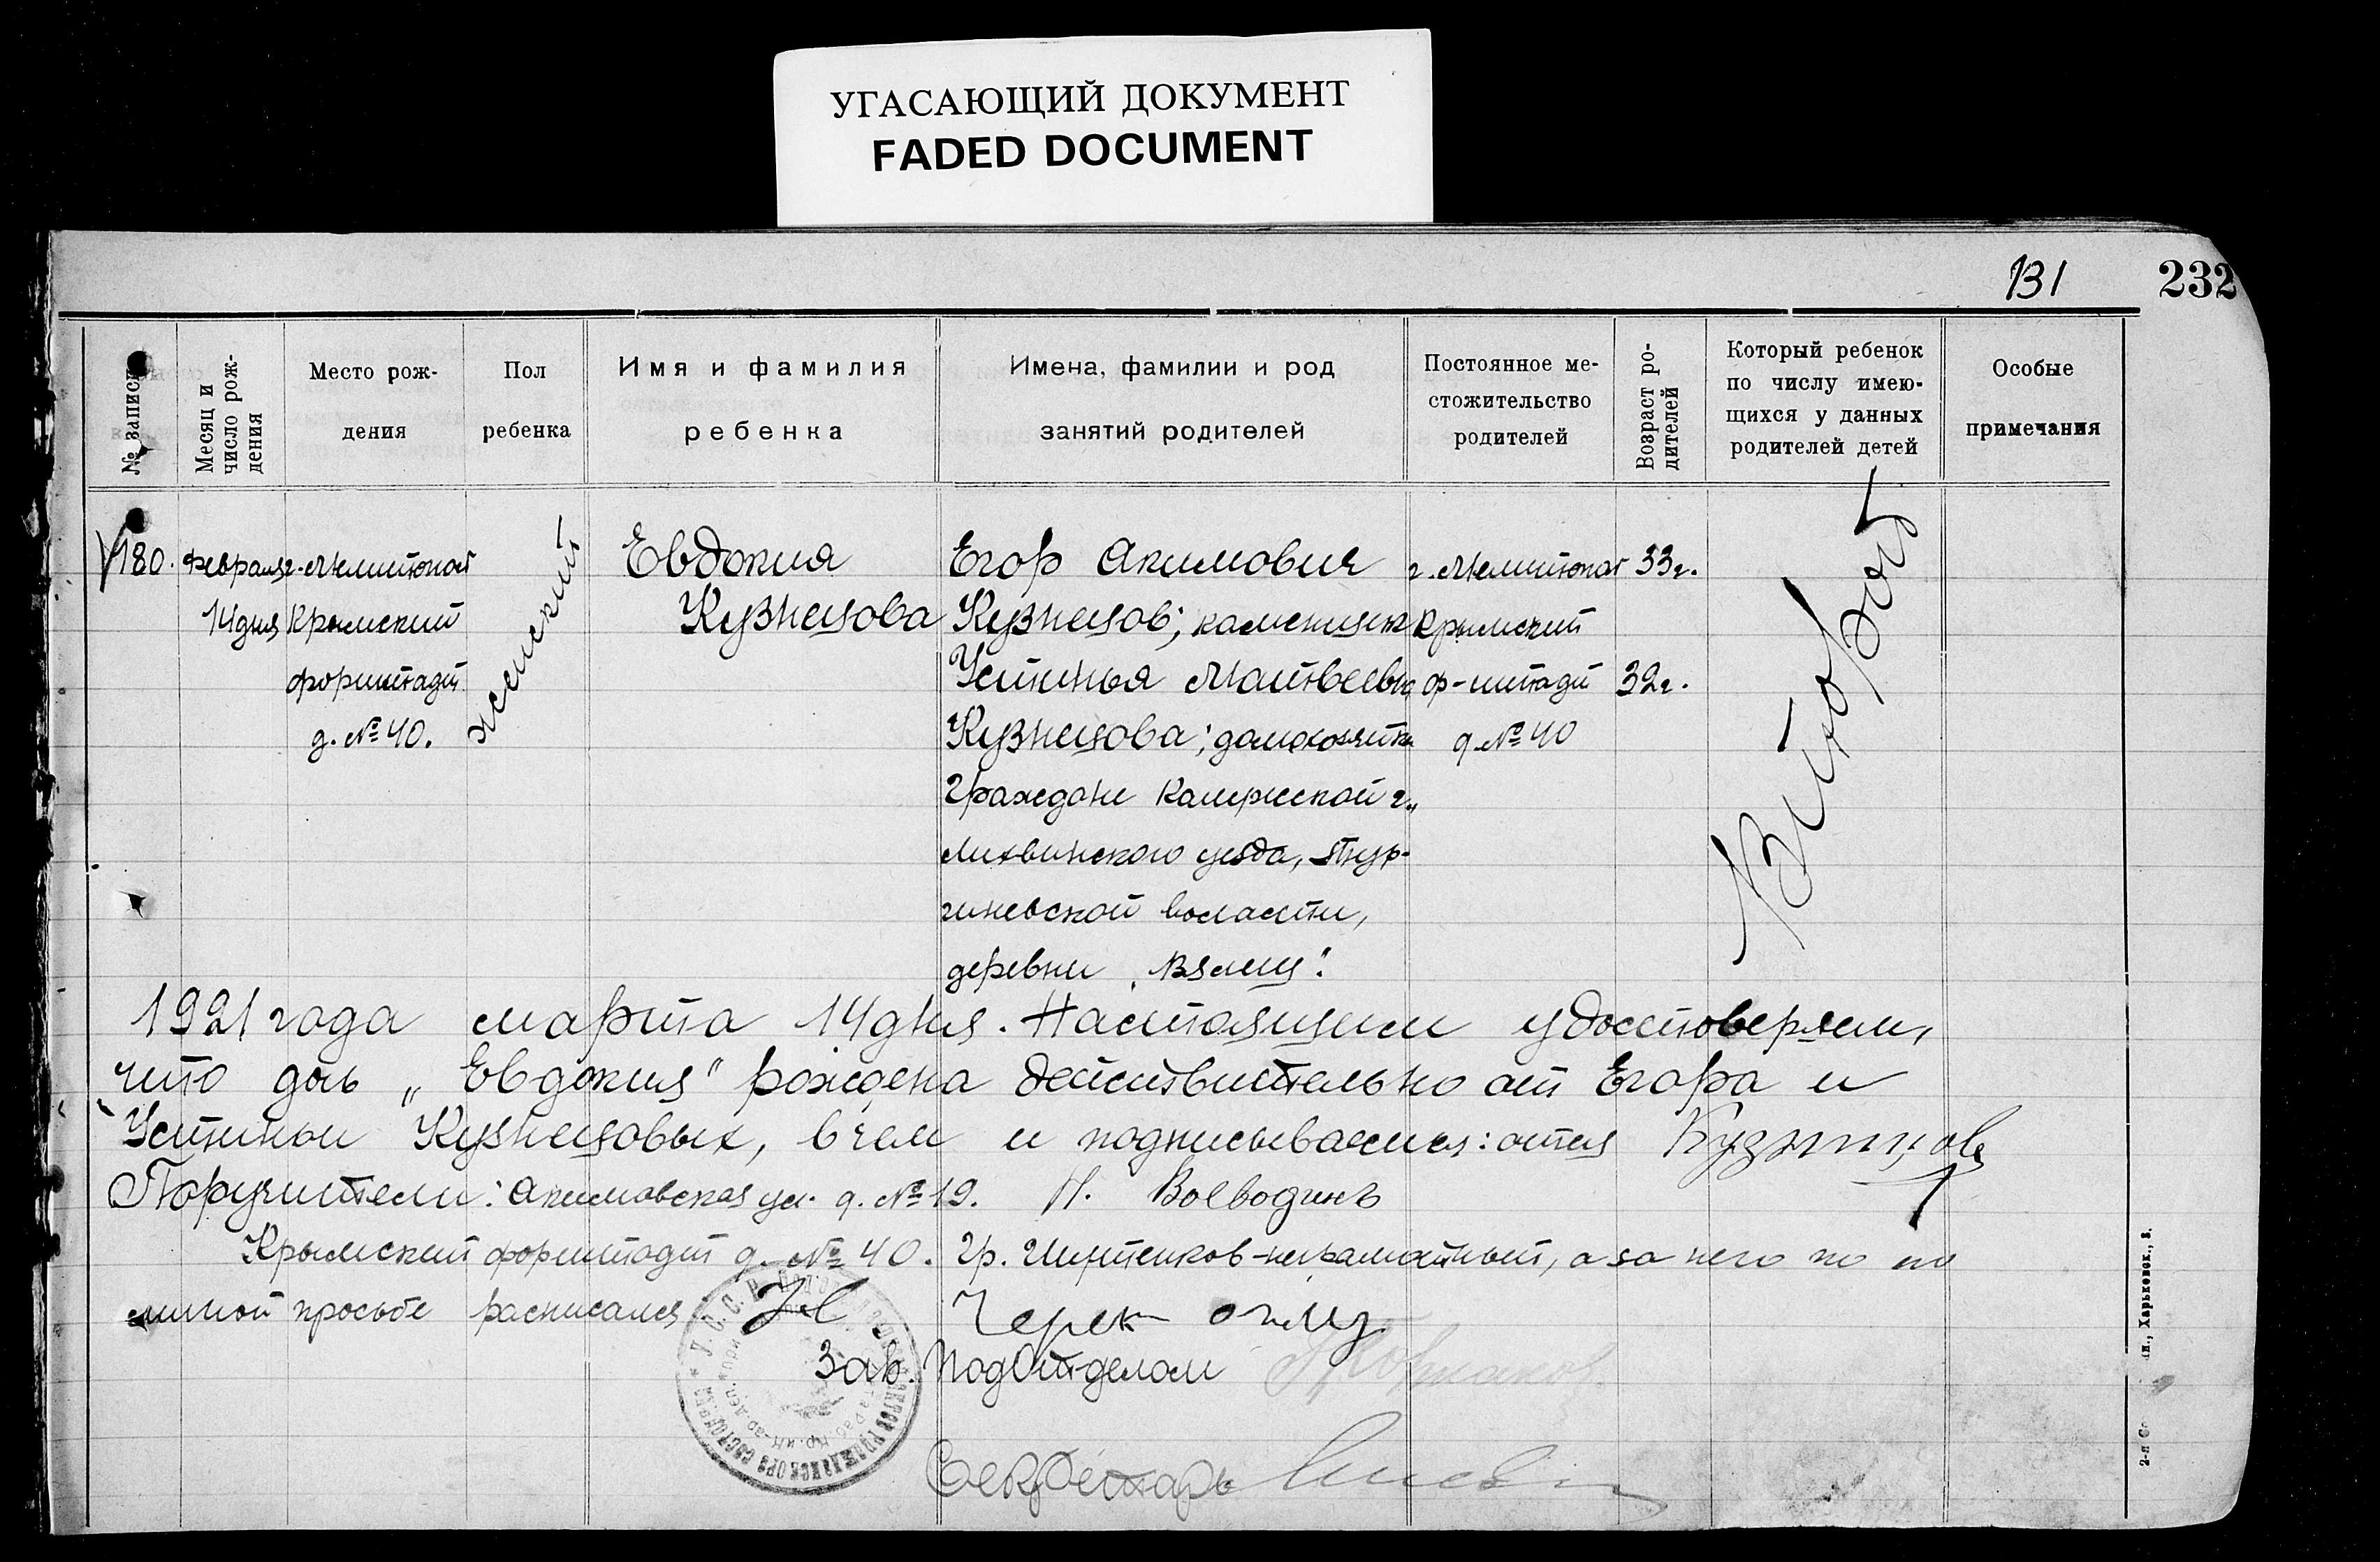 УГАСАЮЩИЙ ДОКУМЕНТ
FADED DOCUMENT
131
232
№ записи
Месяц и число рож-
дения
Место рож-
дения
Пол
ребенка
Имя и фамилия
ребенка
Имена, фамилии и род
занятий родителей
Постоянное ме-
стожительство
родителей
Возраст ро-
дителей
Который ребенок
по числу имею-
щихся у данных
родителей детей
Особые
примечания
180.
февраля
14 дня
г. Мелитополь
Крымский
форштадт
д. № 40.
женский
Евдокия
Кузнецова
Егор Акимович
Кузнецов; каменщик
Устинья Матвеевна
Кузнецова; домохозяйка
Граждане Калужской г.,
Лихвинского уезда,
волости,
деревни
г. Мелитополь
Крымский
ф-штадт
д. № 40
33 г.
32 г.
Второй
1921 года марта 14 дня. Настоящим удостоверяем,
что дочь „Евдокия" рождена действительно от Егора и
Устиньи Кузнецовых, в чем и подписываемся: отец Кузнецов
Поручители: Акимовская ул. д. № 19. Н. Воеводинъ
Крымский форштадт д. № 40. Гр. неграмотный, а за него по
личной просьбе расписался
Зав. Подотделом
Секретарь